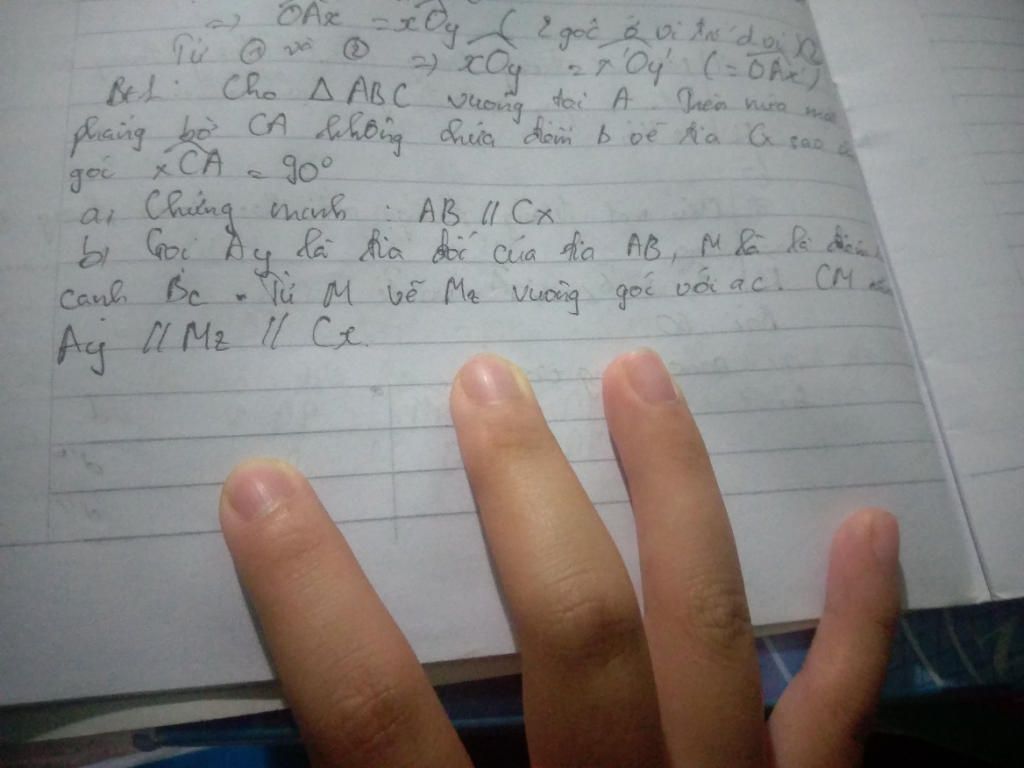 => OAx = xOy ( 2 góc ở vị trí
Từ ① và ② => xOy = x'Oy' ( = OAx')
Bt1: Cho △ ABC vuông tại A. Trên nửa
phẳng bờ CA không chứa điểm B vẽ tia Cx sao
góc xCA = 90°
a, Chứng minh : AB // Cx
b, Gọi Ay là tia đối của tia AB, M là
cạnh BC. Từ M vẽ Mz vuông góc với ac. CM
Ay // Mz // Cx.